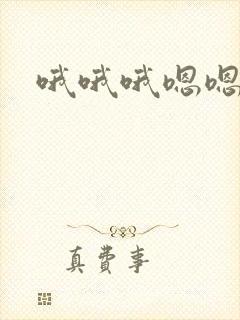 哦哦哦嗯嗯
真费事